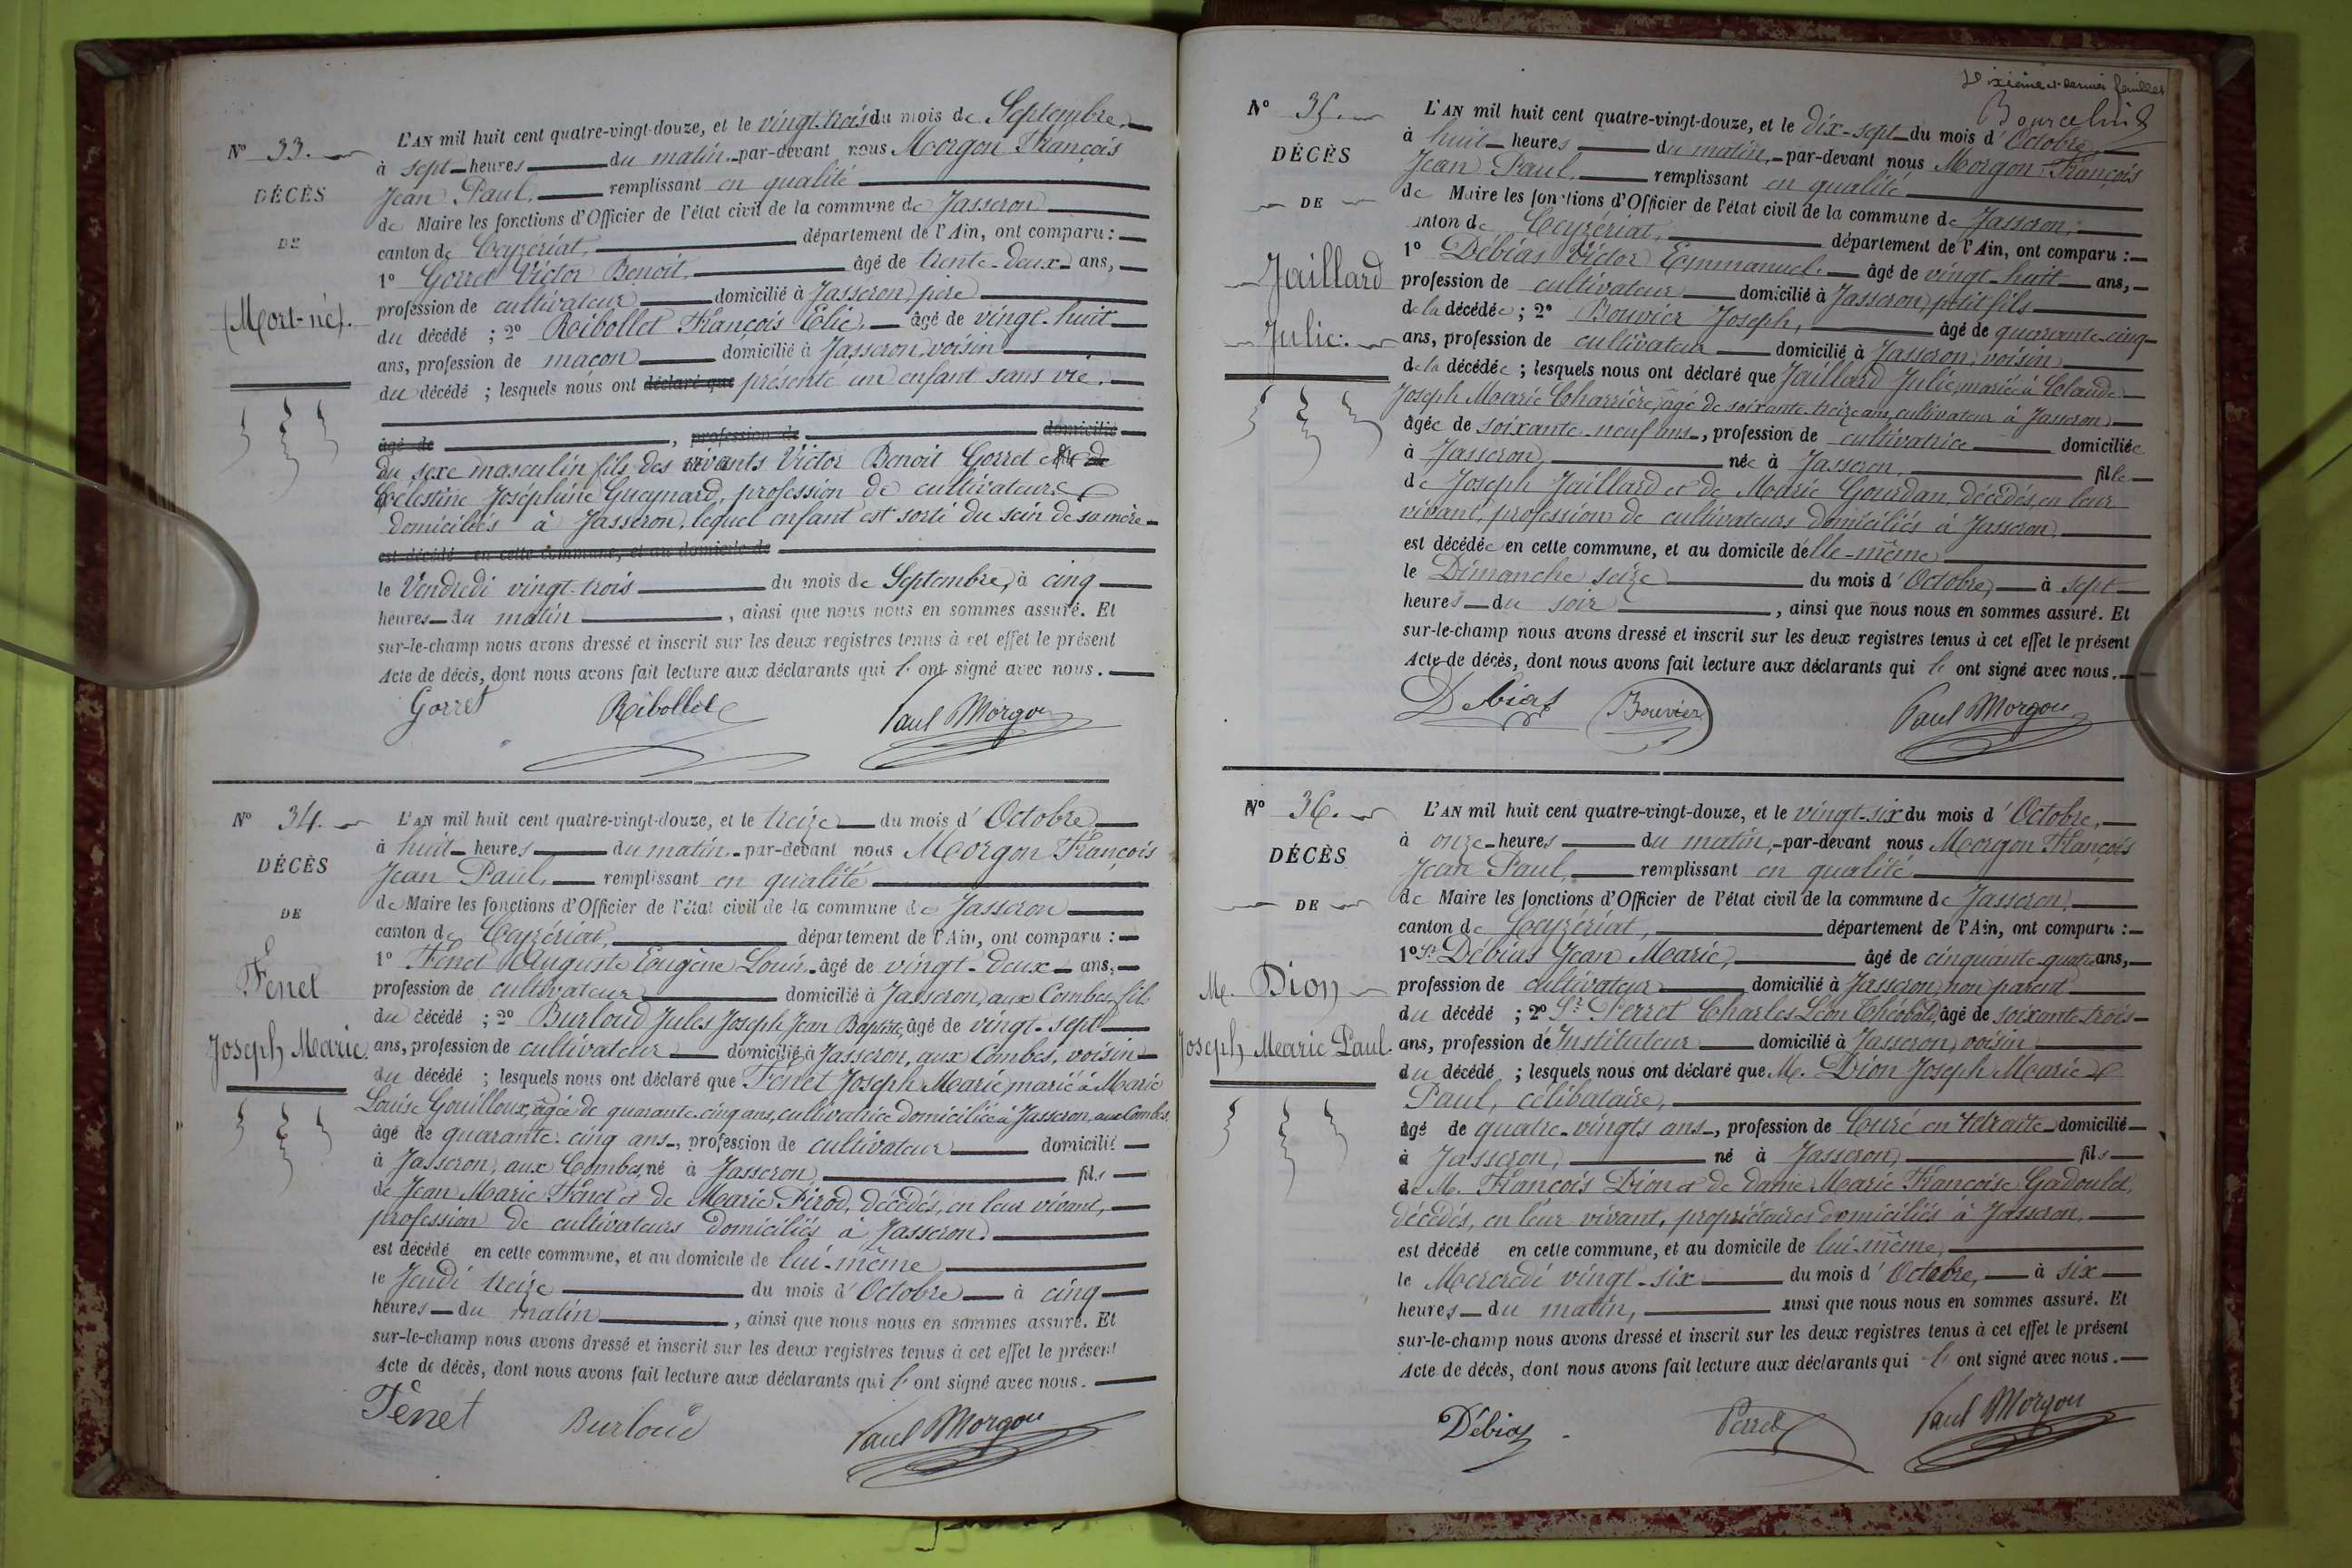 N° 33.
DÉCÈS
DE
(Mort-né).
L'AN mil huit cent quatre-vingt-douze, et le vingt-trois du mois de Septembre,
à sept heures du matin, par-devant nous Morgon François
Jean Paul, remplissant en qualité
de Maire les fonctions d'Officier de l'état civil de la commune de Jasseron
canton de Ceyzériat, département de l'Ain, ont comparu :
1° Gorret Victor Benoit, âgé de trente-deux ans,
profession de cultivateur domicilié à Jasseron, père
du décédé ; 2° Ribollet François Élie, âgé de vingt-huit
ans, profession de maçon domicilié à Jasseron, voisin
du décédé ; lesquels nous ont déclaré que présenté un enfant sans vie.
âgé de , profession de domicilié
du sexe masculin fils des vivants Victor Benoit Gorret et de
Célestine Joséphine Gueynard, profession de cultivateurs
domiciliés à Jasseron, lequel enfant est sorti du sein de sa mère
est décédé en cette commune, et au domicile de
le Vendredi vingt-trois du mois de Septembre, à cinq
heures du matin , ainsi que nous nous en sommes assuré. Et
sur-le-champ nous avons dressé et inscrit sur les deux registres tenus à cet effet le présent
Acte de décès, dont nous avons fait lecture aux déclarants qui l' ont signé avec nous.
Gorret Ribollet Paul Morgon
N° 34.
DÉCÈS
DE
Fenet
Joseph Marie.
L'AN mil huit cent quatre-vingt-douze, et le treize du mois d'Octobre
à huit heures du matin, par-devant nous Morgon François
Jean Paul, remplissant en qualité
de Maire les fonctions d'Officier de l'état civil de la commune de Jasseron
canton de Ceyzériat, département de l'Ain, ont comparu :
1° Fenet Auguste Eugène Louis, âgé de vingt-deux ans,
profession de cultivateur domicilié à Jasseron, aux Combes, fils
du décédé ; 2° Burloud Jules Joseph Jean Baptiste, âgé de vingt-sept
ans, profession de cultivateur domicilié à Jasseron, aux Combes, voisin
du décédé ; lesquels nous ont déclaré que Fenet Joseph Marie, marié à Marie
Louise Gouilloux, âgée de quarante-cinq ans, cultivatrice domiciliée à Jasseron, aux Combes,
âgé de quarante-cinq ans, profession de cultivateur domicilié
à Jasseron, aux Combes, né à Jasseron, fils
de Jean Marie Fenet et de Marie Pirod, décédés, en leur vivant,
profession de cultivateurs domiciliés à Jasseron,
est décédé en cette commune, et au domicile de lui-même,
le Jeudi treize du mois d'Octobre à cinq
heures du matin , ainsi que nous nous en sommes assuré. Et
sur-le-champ nous avons dressé et inscrit sur les deux registres tenus à cet effet le présent
Acte de décès, dont nous avons fait lecture aux déclarants qui l' ont signé avec nous.
Fenet Burloud Paul Morgon
Dixième et dernier feuillet
N° 35.
DÉCÈS
DE
Jaillard
Julie.
L'AN mil huit cent quatre-vingt-douze, et le dix-sept du mois d'Octobre,
à huit heures du matin, par-devant nous Morgon François
Jean Paul, remplissant en qualité
de Maire les fonctions d'Officier de l'état civil de la commune de Jasseron,
anton de Ceyzériat, département de l'Ain, ont comparu :
1° Débias Victor Emmanuel, âgé de vingt-huit ans,
profession de cultivateur domicilié à Jasseron, petit fils
de la décédée ; 2° Bouvier Joseph, âgé de quarante-cinq
ans, profession de cultivateur domicilié à Jasseron, voisin
de la décédée ; lesquels nous ont déclaré que Jaillard Julie, mariée à Claude
Joseph Marie Charrière, âgé de soixante-treize ans, cultivateur à Jasseron
âgée de soixante-neuf ans, profession de cultivatrice domiciliée
à Jasseron, née à Jasseron, fille
de Joseph Jaillard et de Marie Gourdan, décédés, en leur
vivant, profession de cultivateurs domiciliés à Jasseron,
est décédée en cette commune, et au domicile d'elle-même
le Dimanche seize du mois d'Octobre, à sept
heures du soir , ainsi que nous nous en sommes assuré. Et
sur-le-champ nous avons dressé et inscrit sur les deux registres tenus à cet effet le présent
Acte de décès, dont nous avons fait lecture aux déclarants qui l' ont signé avec nous.
Debias Bouvier Paul Morgon
N° 36.
DÉCÈS
DE
M. Dion
Joseph Marie Paul.
L'AN mil huit cent quatre-vingt-douze, et le vingt-six du mois d'Octobre,
à onze heures du matin, par-devant nous Morgon François
Jean Paul, remplissant en qualité
de Maire les fonctions d'Officier de l'état civil de la commune de Jasseron,
canton de Ceyzériat, département de l'Ain, ont comparu :
1° Sr Débias Jean Marie, âgé de cinquante-quatre ans,
profession de cultivateur domicilié à Jasseron, non parent
du décédé ; 2° Sr Perret Charles Léon Théobald, âgé de soixante-trois
ans, profession d'Instituteur domicilié à Jasseron, voisin
du décédé ; lesquels nous ont déclaré que M. Dion Joseph Marie
Paul, célibataire,
âgé de quatre-vingts ans, profession de Curé en retraite domicilié
à Jasseron, né à Jasseron, fils
de M. François Dion et de dame Marie Françoise Gadoulet,
décédés, en leur vivant, propriétaires domiciliés à Jasseron,
est décédé en cette commune, et au domicile de lui-même,
le Mercredi vingt-six du mois d'Octobre, à six
heures du matin, ainsi que nous nous en sommes assuré. Et
sur-le-champ nous avons dressé et inscrit sur les deux registres tenus à cet effet le présent
Acte de décès, dont nous avons fait lecture aux déclarants qui l' ont signé avec nous.
Débias Perret Paul Morgon